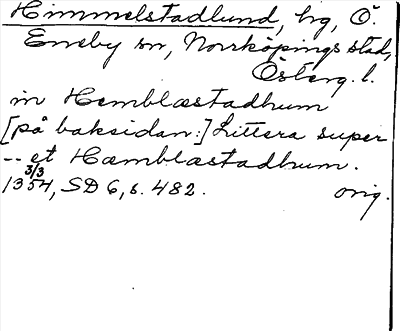 Himmelstadlund, hg, Ö.
Eneby sn, Norrköpings stad,
Österg. l.
in Hemblastadhum
[på baksidan:] Littera super
-- et Hæmblastadhum.
3/3
1354, SD 6, s. 482. orig.